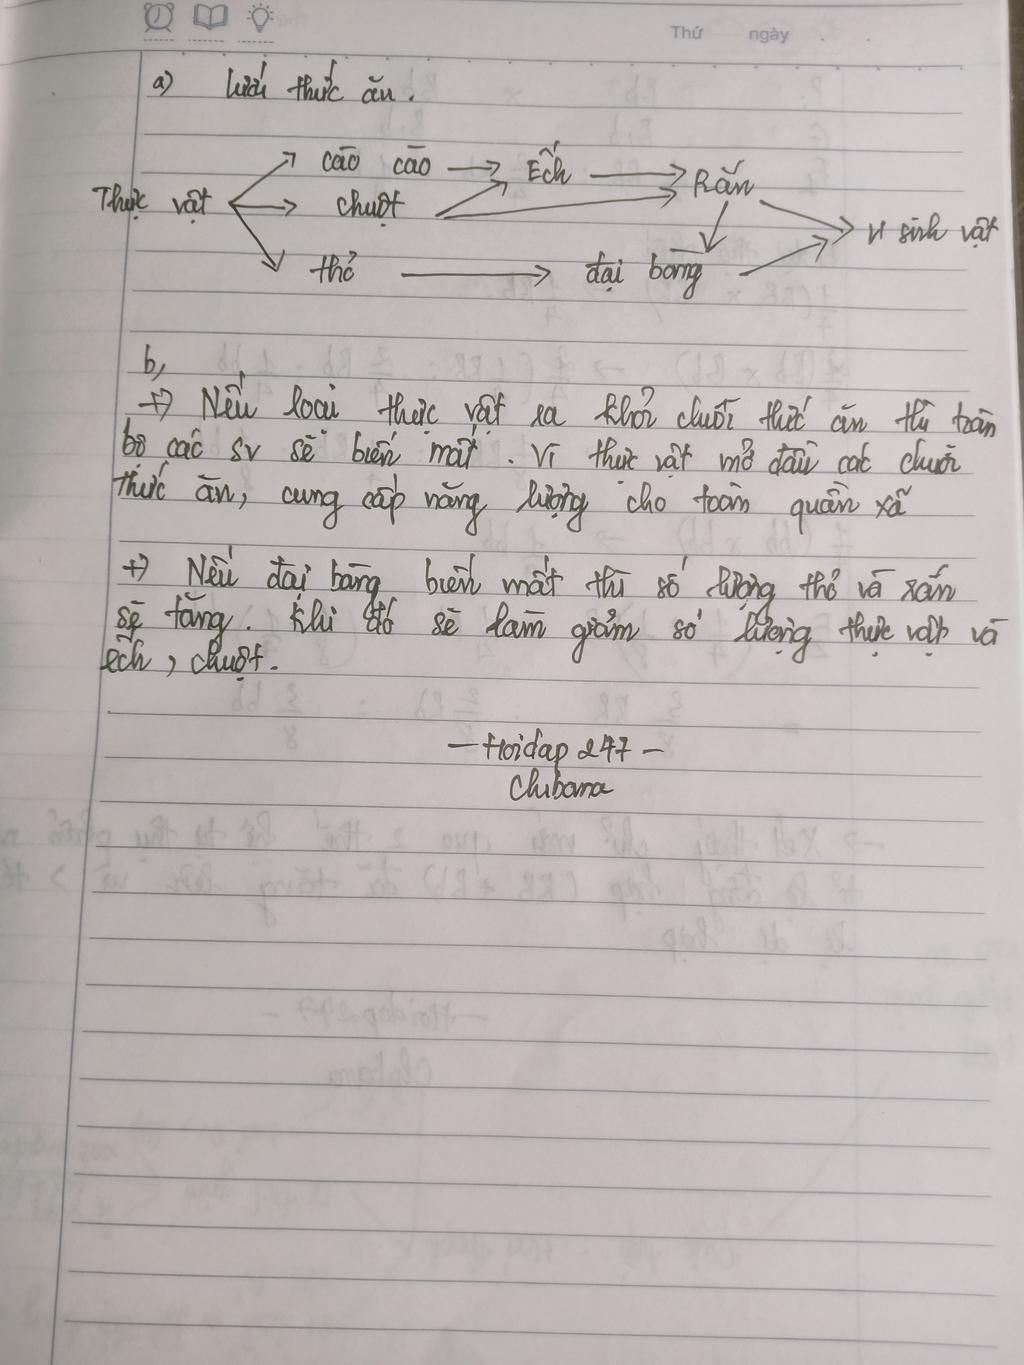 Thứ ngày
a) lưới thức ăn.
cào cào Ếch Rắn
Thực vật chuột vi sinh vật
thỏ đại bàng
b,
+) Nếu loại thực vật ra khỏi chuỗi thức ăn thì toàn
bộ các sv sẽ biến mất. Vì thực vật mở đầu các chuỗi
thức ăn, cung cấp năng lượng cho toàn quần xã
+) Nếu đại bàng biến mất thì số lượng thỏ và rắn
sẽ tăng. khi đó sẽ làm giảm số lượng thực vật và
ếch, chuột.
- Hoidap 247 -
Chibana